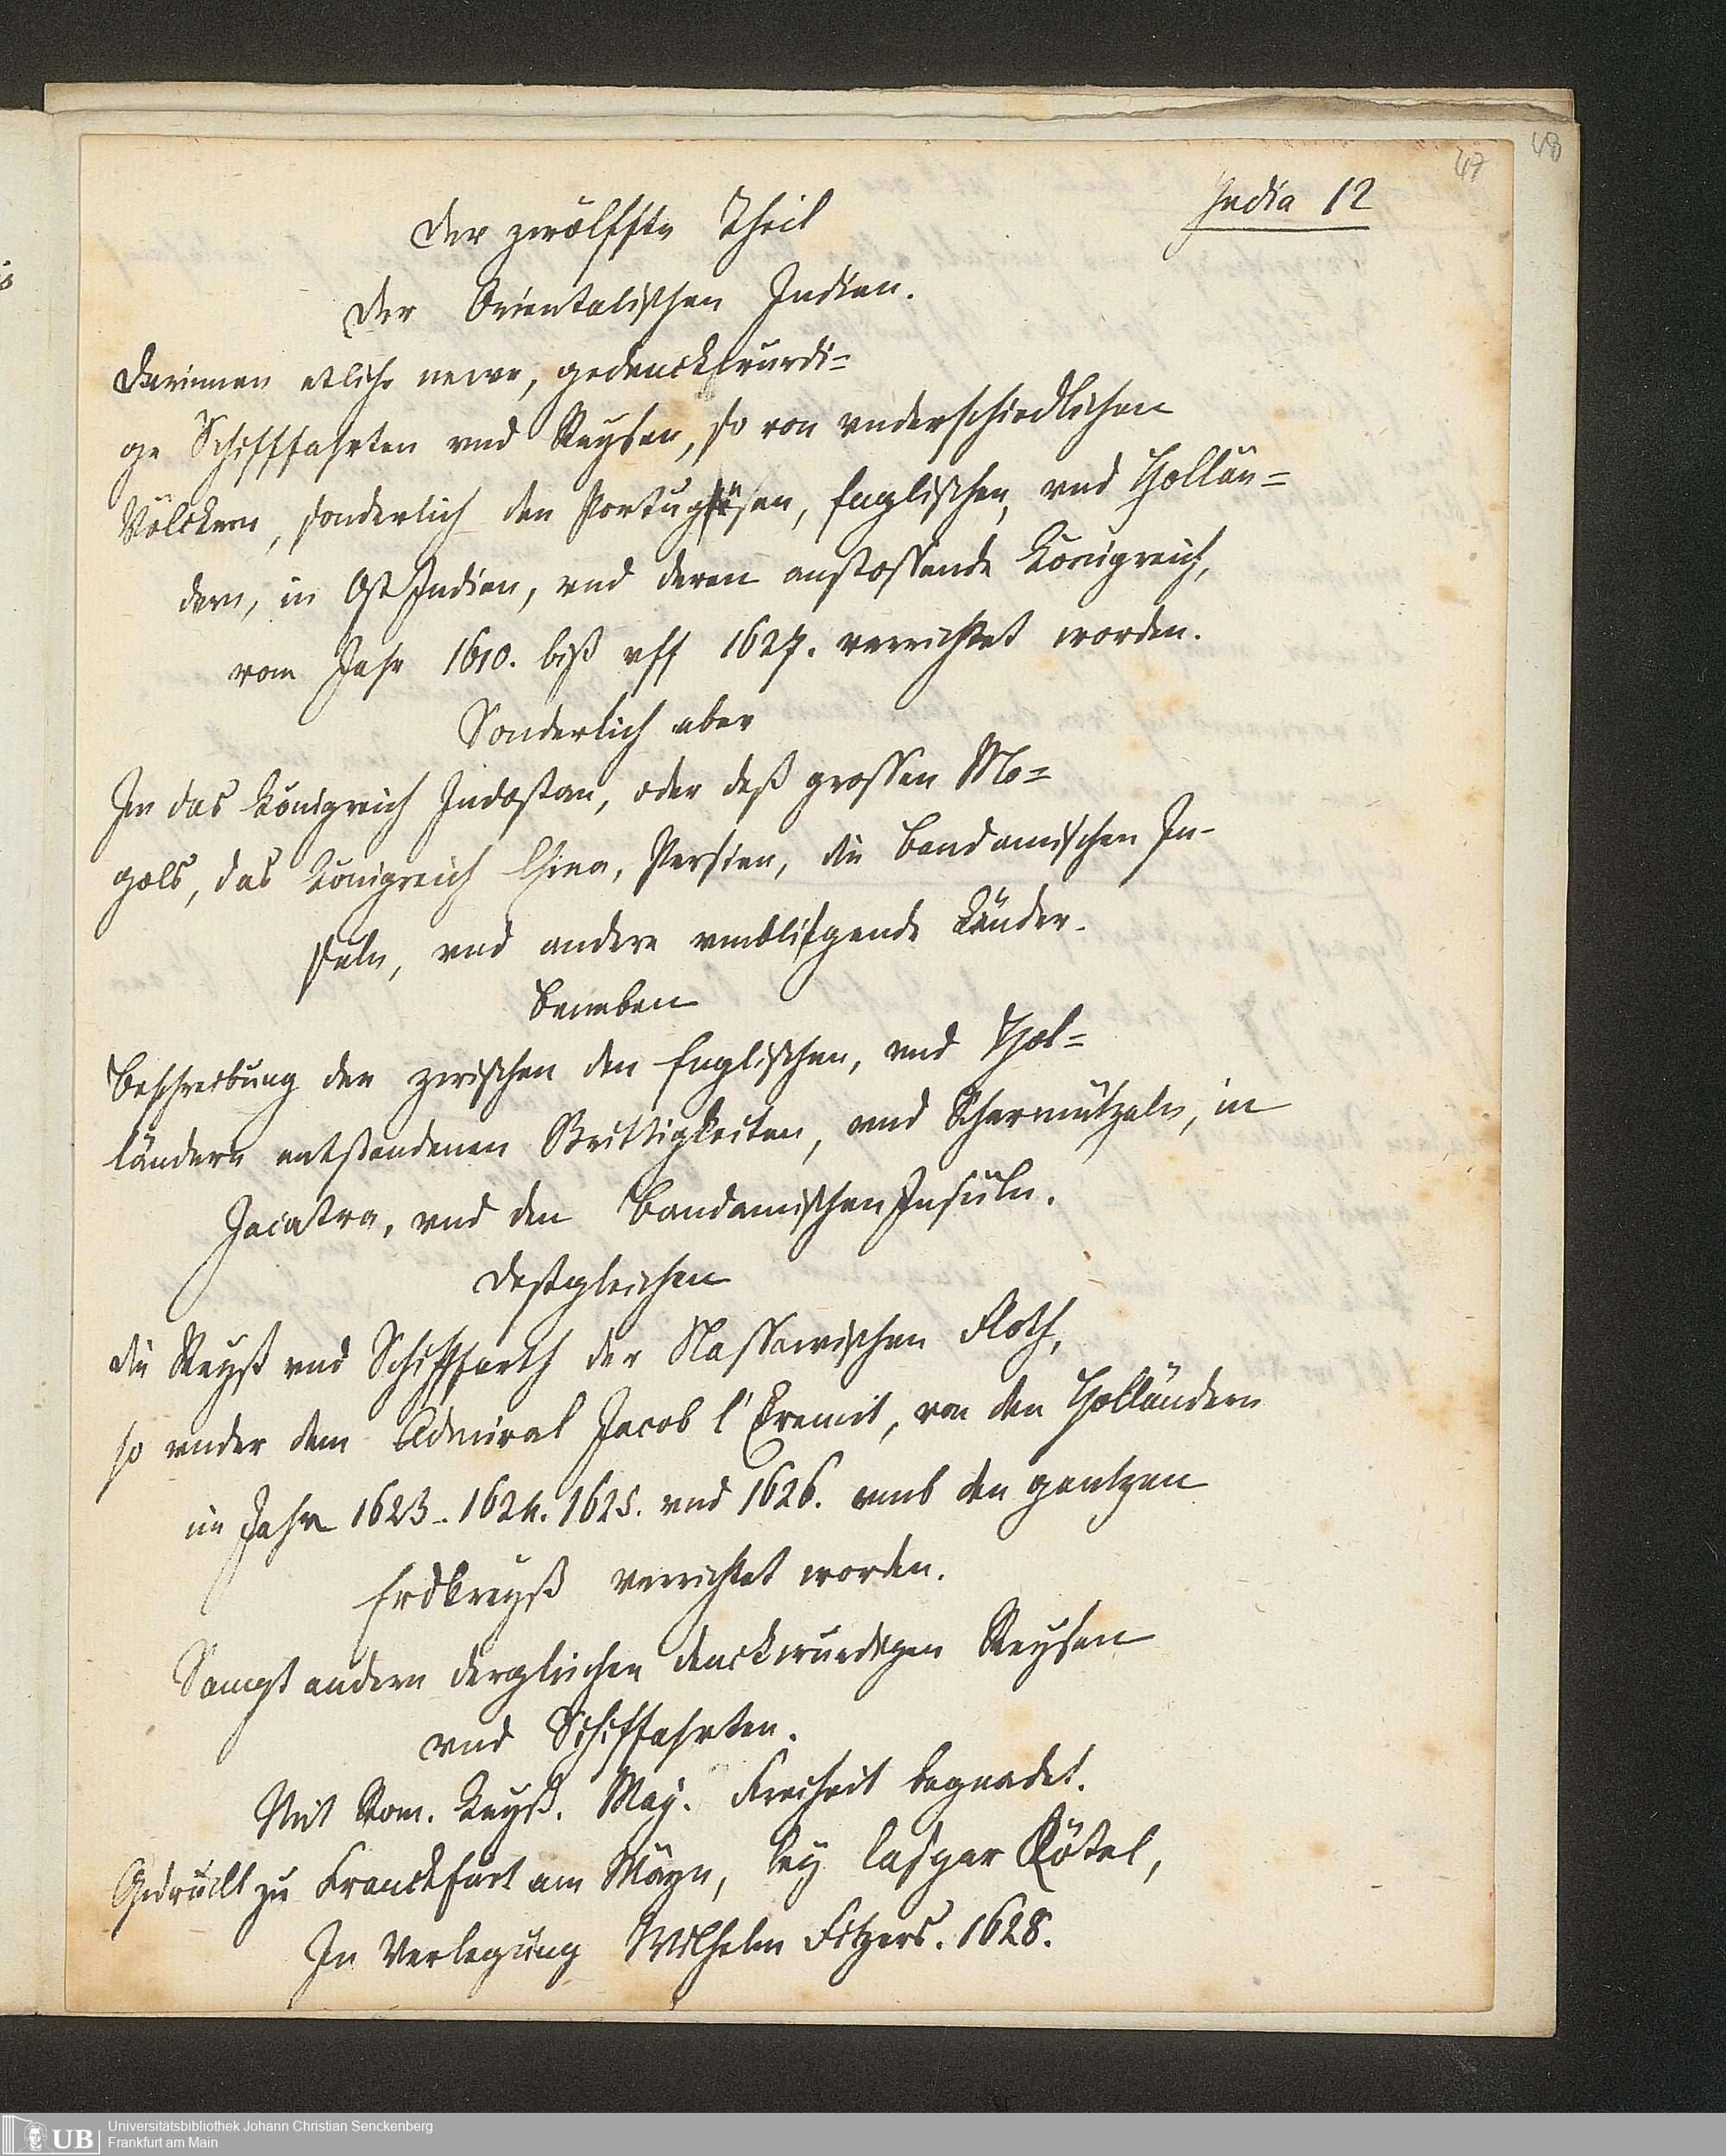 48
47
India 12
Der zwölffte Theil
Der Orientalischen Indien.
Darinnen etliche newe, gedenckwurdi=
ge Schifffahrten vnd Reysen, so von vnderschiedlichen
Völckern, sonderlich den Portugäsen, Englischen, vnd Hollän=
dern, in Ost Indien, vnd deren anstossende Königreich,
vom Jahr 1610. biß vff 1627. verrichtet worden.
Sonderlich aber
In das Königreich Indostan, oder deß grossen Mo=
gols, das Königreich China, Persien, die Bandamischen In-
suln, vnd andere vmbligende Länder.
Beneben
Beschreibung der zwischen den Englischen, vnd Hol=
ländern entstandenen Strittigkeiten, vnd Scharmützeln, in
Jacatra, vnd den Bandamischen Insuln.
Deßgleichen
die Reyß vnd Schifffarth der Nassawischen Floth,
so vnder dem Admiral Jacob l'Eremit, von den Holländern
im Jahr 1623. 1624. 1625. vnd 1626. vmb den gantzen
Erdkreyß verrichtet worden.
Sampt andern dergleichen denckwurdigen Reysen
vnd Schiffahrten.
Mit Rom. Keyß. May. Freiheit begnadet.
Gedruckt zu Franckfurt am Mäyn, bey Caspar Rötel,
In Verlegung Wilhelm Fitzers. 1628.
UB
Universitätsbibliothek Johann Christian Senckenberg
Frankfurt am Main